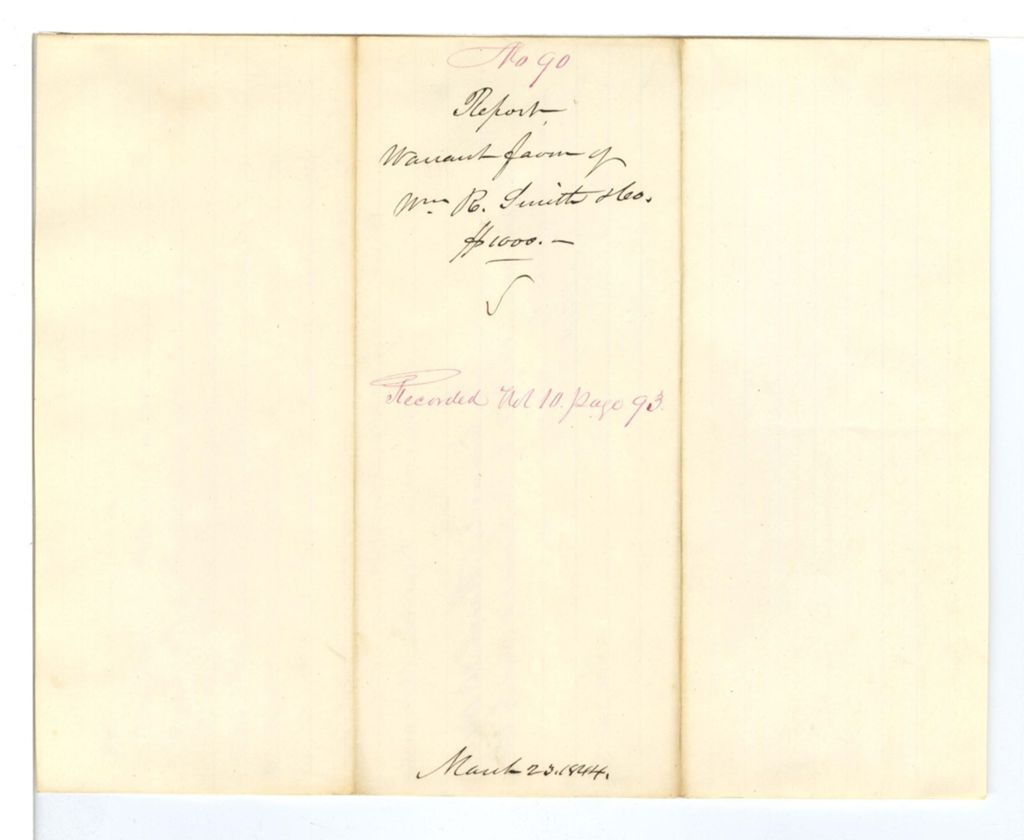 No 90
Report
Warrant favor of
Wm R. Smith & Co.
$1000.—
Recorded Vol 10. page 93.
March 23. 1844.